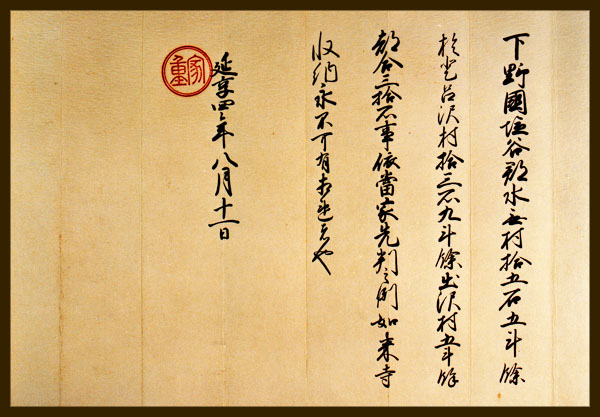 下野國塩谷郡水無村拾五石五斗餘
沢村拾三石九斗餘出沢村五斗餘
都合三拾石事依當家先判之例如来寺
收納永不可有相違者也
延享四年八月十一日
家重